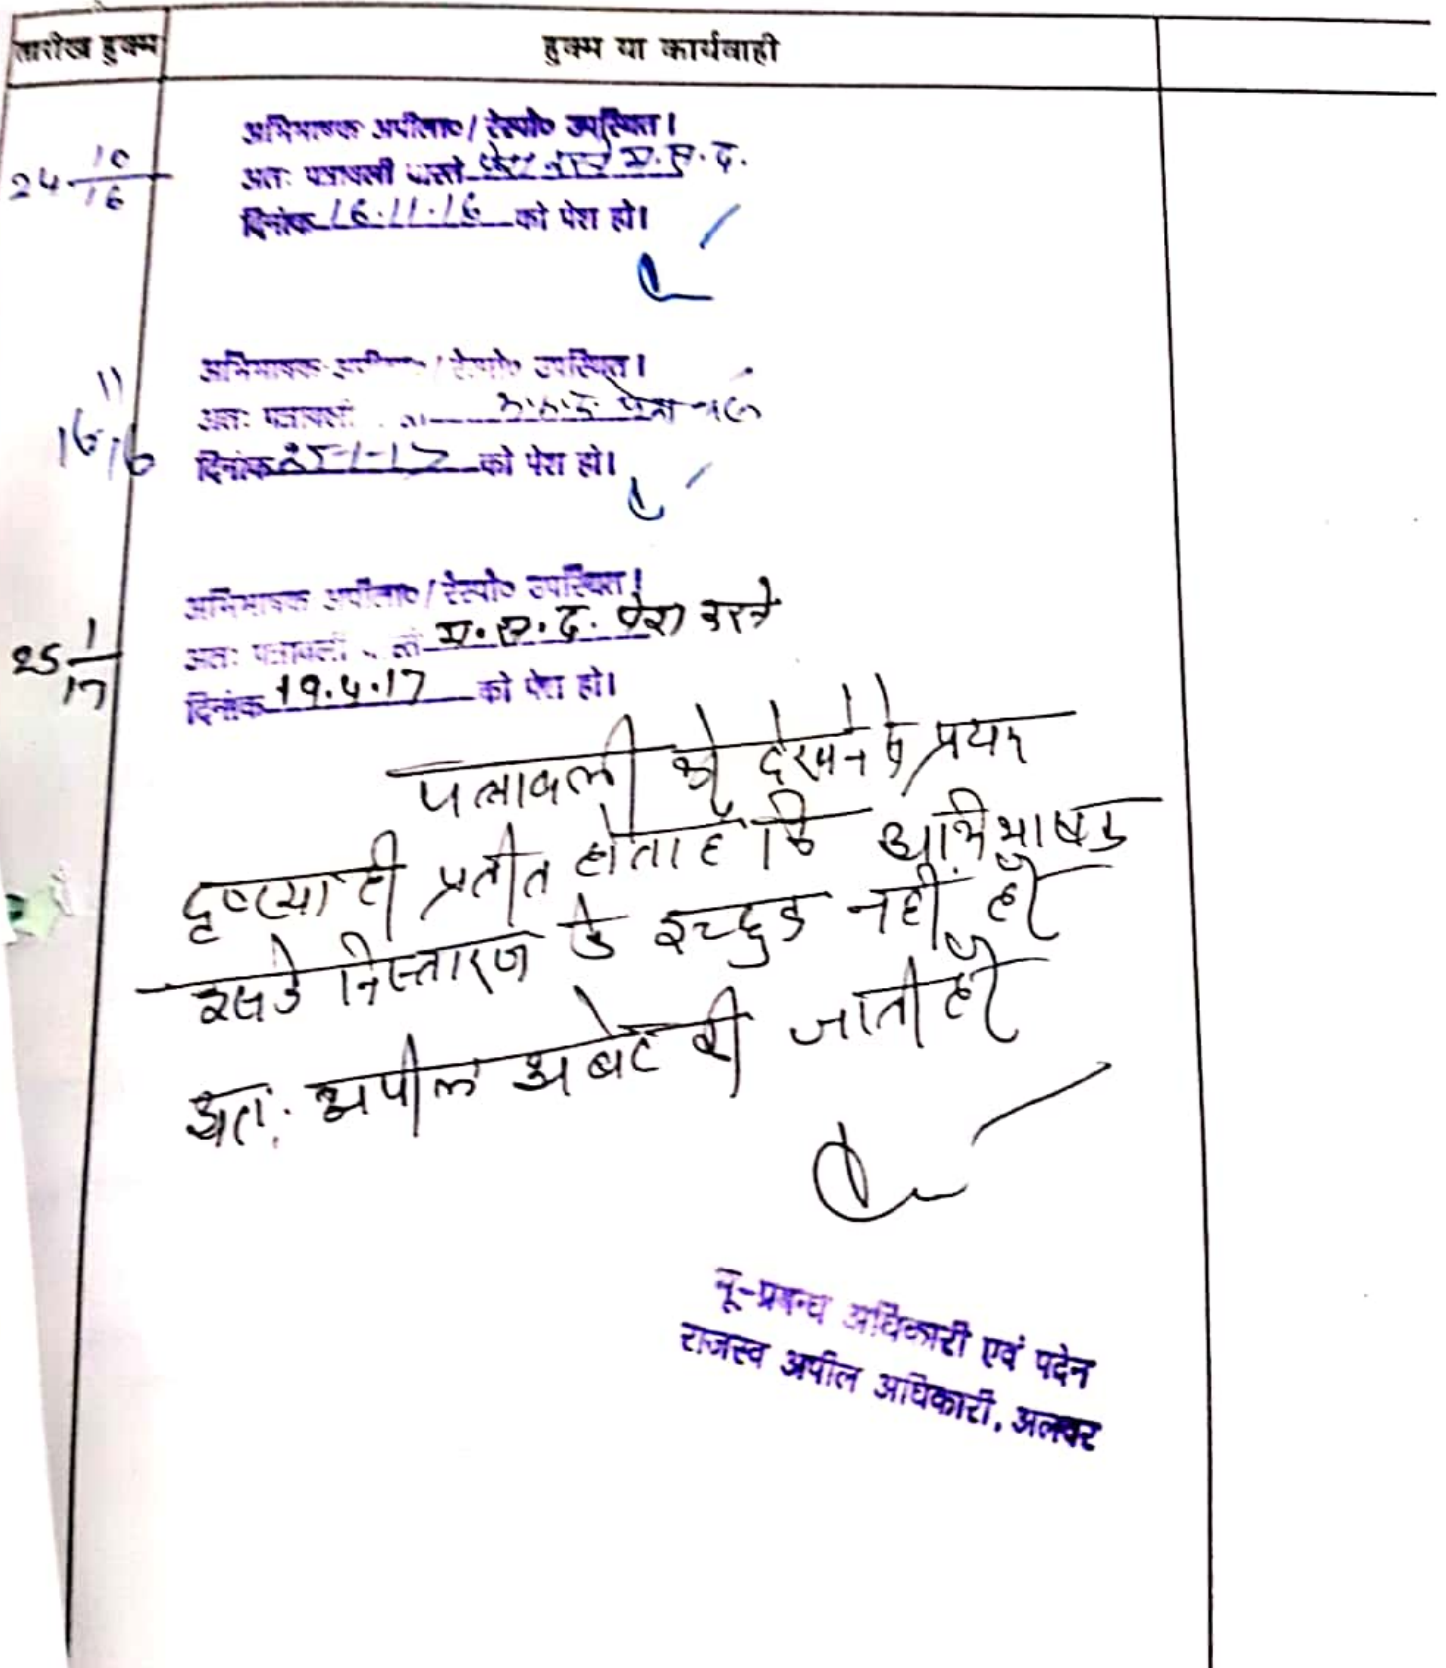 तारीख हुक्म
हुक्म या कार्यवाही
24 10/16
अभिभाषक अपीला०/रेस्पो० उपस्थित।
अतः पत्रावली वास्ते पेश करने म.स.द.
दिनांक 16.11.16 को पेश हो।
16 11/16
अभिभाषक अपीला०/रेस्पो० उपस्थित।
अतः पत्रावली पेश
दिनांक 25-1-17 को पेश हो।
25 1/17
अभिभाषक अपीला०/रेस्पो० उपस्थित।
अतः पत्रावली म.स.द. पेश करने
दिनांक 19.4.17 को पेश हो।
पत्रावली को देखने से प्रथम
दृष्टया ही प्रतीत होता है कि अभिभाषक
इसके निस्तारण के इच्छुक नहीं है।
अतः अपील अबेट की जाती है।
भू-प्रबन्ध अधिकारी एवं पदेन
राजस्व अपील अधिकारी, अलवर